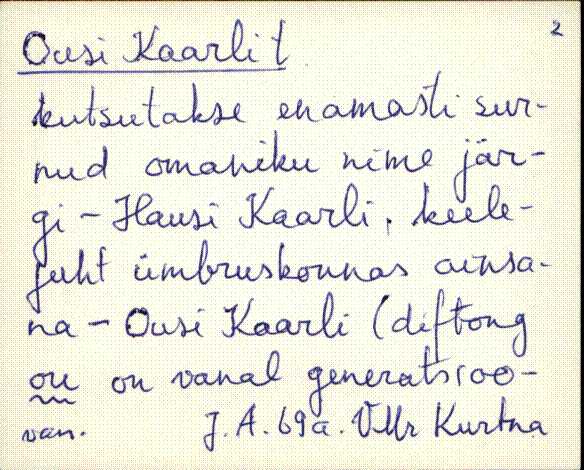 2
Ousi Kaarlit
kutsutakse enamasti sur-
nud omaniku nime jär-
gi - Hausi Kaarli, keele-
juht ümbruskonnas ainsa-
na - Ousi Kaarli (diftong
ou on vanal generatsioo-
van. J. A. 69 a. VMr Kurtna